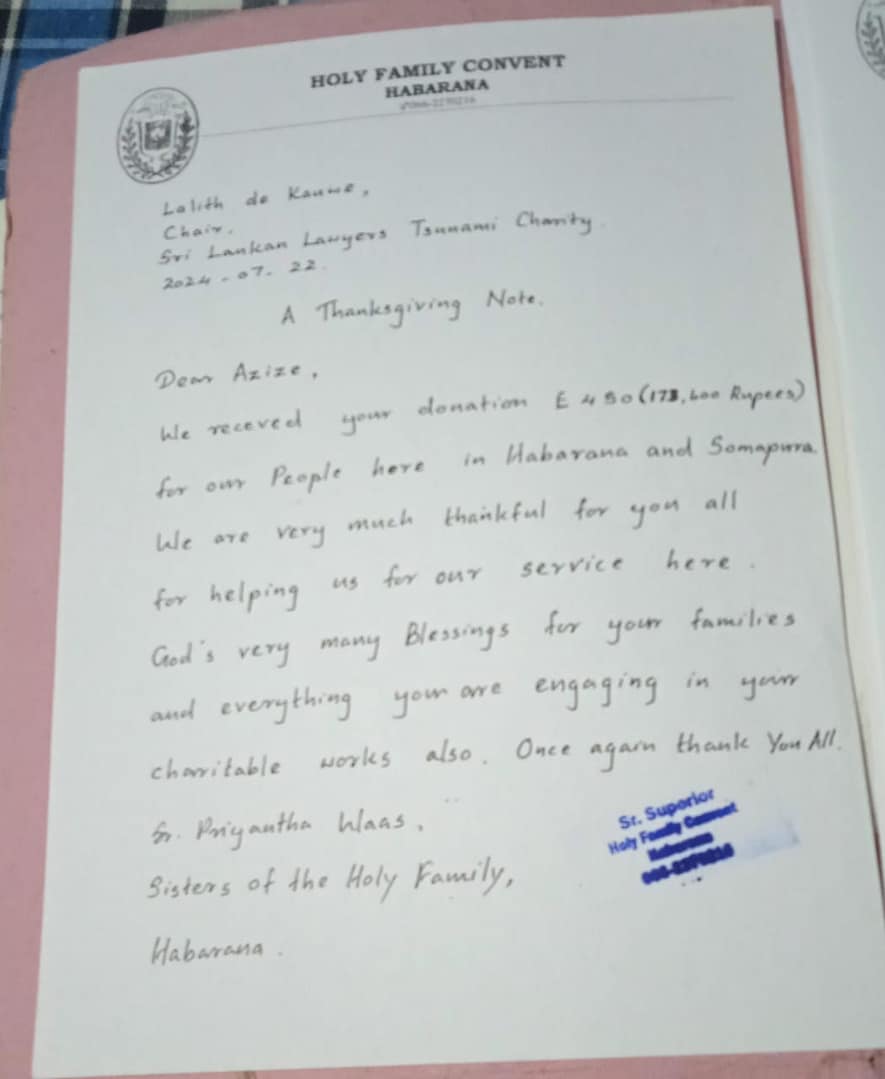 HOLY FAMILY CONVENT
HABARANA
Lalith de Kauwe,
Chair,
Sri Lankan Lawyers Tsunami Charity.
2024-07-22.
A Thanksgiving Note.
Dear Azize,
We receved your donation £ 450 (173,600 Rupees)
for our People here in Habarana and Somapurra.
We are very much thankful for you all
for helping us for our service here.
God's very many Blessings for your families
and everything your are engaging in your
charitable works also. Once again thank You All.
Sr. Priyantha Waas,
Sisters of the Holy Family,
Habarana.
Sr. Superior
Holy Family Convent
Habarana